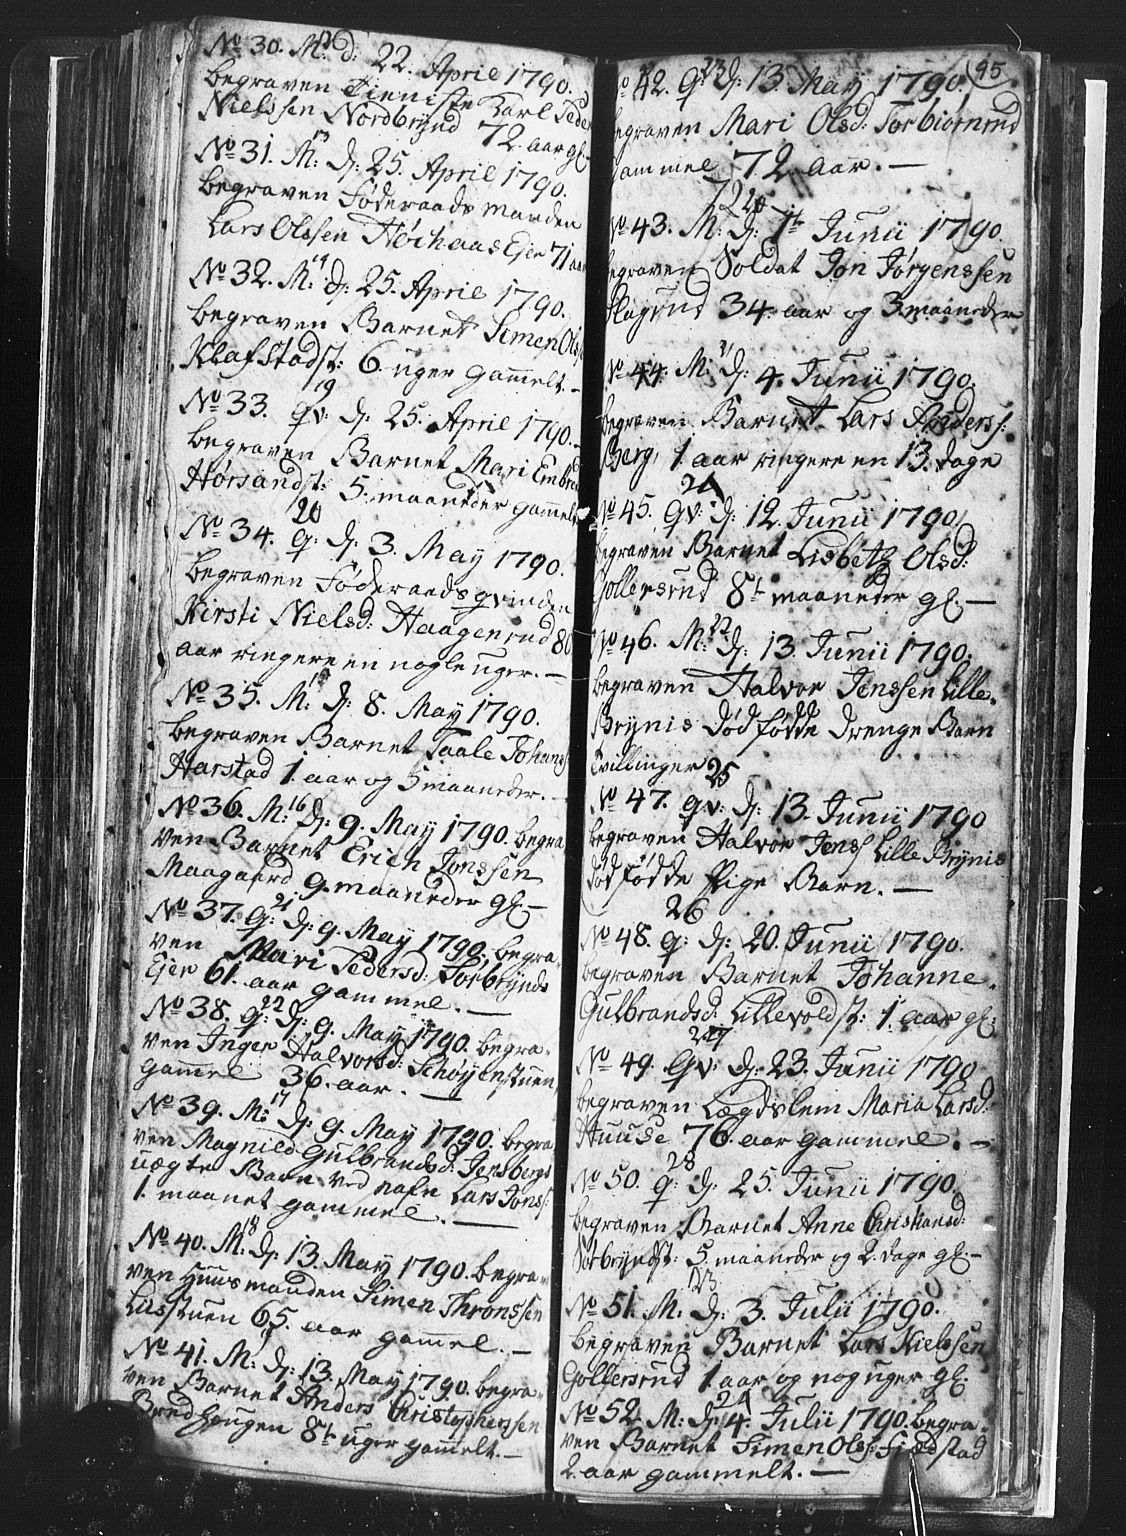 No 30. M: d: 22. April 1790.
begraven Tieniste Karl Peder
Nielssen Nordbrynd 72. aar gl.
13
No 31. M: d: 25. April 1790.
begraven Føderaads manden
Lars Olssen Hørhaas Ejer 71 aar
14
No 32. M: d: 25. April 1790.
begraven Barnet Simen Olss
Klafstadst: 6. uger gammelt. -
19
No 33. qv. d: 25. April 1790. -
begraven Barnet Mari Embred
Hørsandst: 5. maaneder gammelt
20
No 34. q: d: 3. May 1790.
begraven Føderaadsqvinden
Kirsti Nielsd: Haagenrud 80
aar ringere en nogle uger. -
No 35. M: d: 8. May 1790.
begraven Barnet Paale Johans
Harstad 1. aar og 5 maaneder. -
16
No 36. M: d: 9. May 1790. begra
ven Barnet Erich Jonssen
Maagaard 9. maaneder gl -
21
No 37. q: d: 9. May 1790. begra-
ven Mari Pedersd: Torbrynds
Ejer 61. aar gammel. -
22
No 38. q: d: 9. May 1790. begra-
ven Inger Halvorsd: Schoyenstuen
gammel 36. aar. -
17
No 39. M: d: 9. May 1790. begra
ven Magnild Gulbrandsd: Jensbergs
uægte Barn ved nafn Lars Jonss:
1. maanet gammel. -
18
No 40. M: d: 13. May 1790. begra-
ven Huusmanden Simen Thronssen
Liisstuen 65. aar gammel. -
No 41. M: d: 13. May 1790. begra-
ven Barnet Anders Christophersen
Bredhougen 8t uger gammelt. -
95
23
No 42. q: d: 13. May 1790.
begraven Mari Olsd: Torbiørnrud
gammel 72 aar. -
72 20
No 43. M: d: 1t Junii 1790.
begraven Soldat Jon Jørgenssen
Slagsrud 34. aar og 3 maaneder
21
No 44. M: d: 4. Junii 1790.
begraven Barnet Lars Anderss:
Berg, 1. aar ringere en 13. dage
24
No 45. qv: d: 12. Junii 1790.
begraven Barnet Lisbeth Olsd:
Gollersrud 8t maaneder gl. -
22
No 46. M: d: 13. Junii 1790.
begraven Halvor Jenssen Lille-
Brynis dødfødde drenge Barn
Tvillinger
25
No 47. qv: d: 13. Junii 1790
begraven Halvor Jenss Lille Brynis
dødfødde Pige Barn. -
26
No 48. q: d: 20. Junii 1790.
begraven Barnet Johanne
Gulbrandsd: Lillevoldst: 1. aar gl:
27
No 49. qv: d: 23. Junii 1790
begraven Lægdslem Maria Larsd:
Huuse 76. aar gammel. -
28
No 50. q: d: 25. Junii 1790.
begraven Barnet Anne Christiansd:
Sørbryndst: 5 maaneder og 2. dage gl. -
23.
No 51. M: d: 3. Julii 1790.
begraven Barnet Lars Nielssen
Gollersrud 1 aar og nog uger gl.
24
No 52. M: d: 4. Julii 1790. begra-
ven Barnet Simen Olss: Fieldstad
2. aar gammelt. -